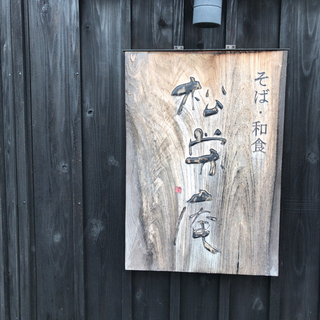 そば・和食
松栄庵